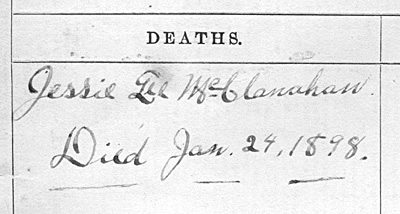 DEATHS.
Jessie Lee McClanahan.
Died Jan. 24, 1898.